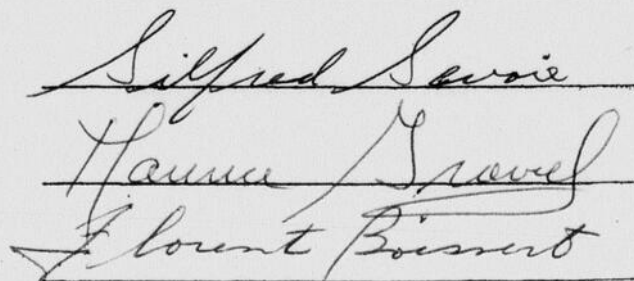 Silfred Savoie
Maurice Gravel
Florent Boisvert